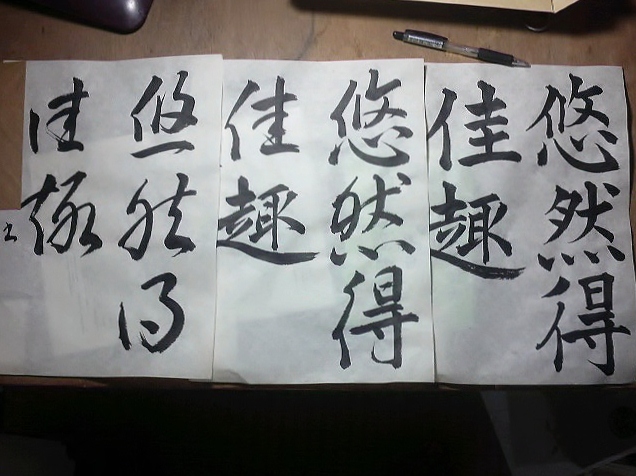 悠然得
佳趣
悠然得
佳趣
悠然得
佳趣